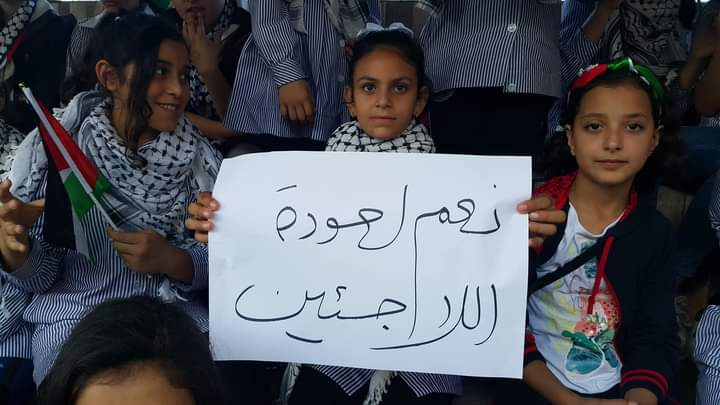 نعم لعودة
اللاجئين